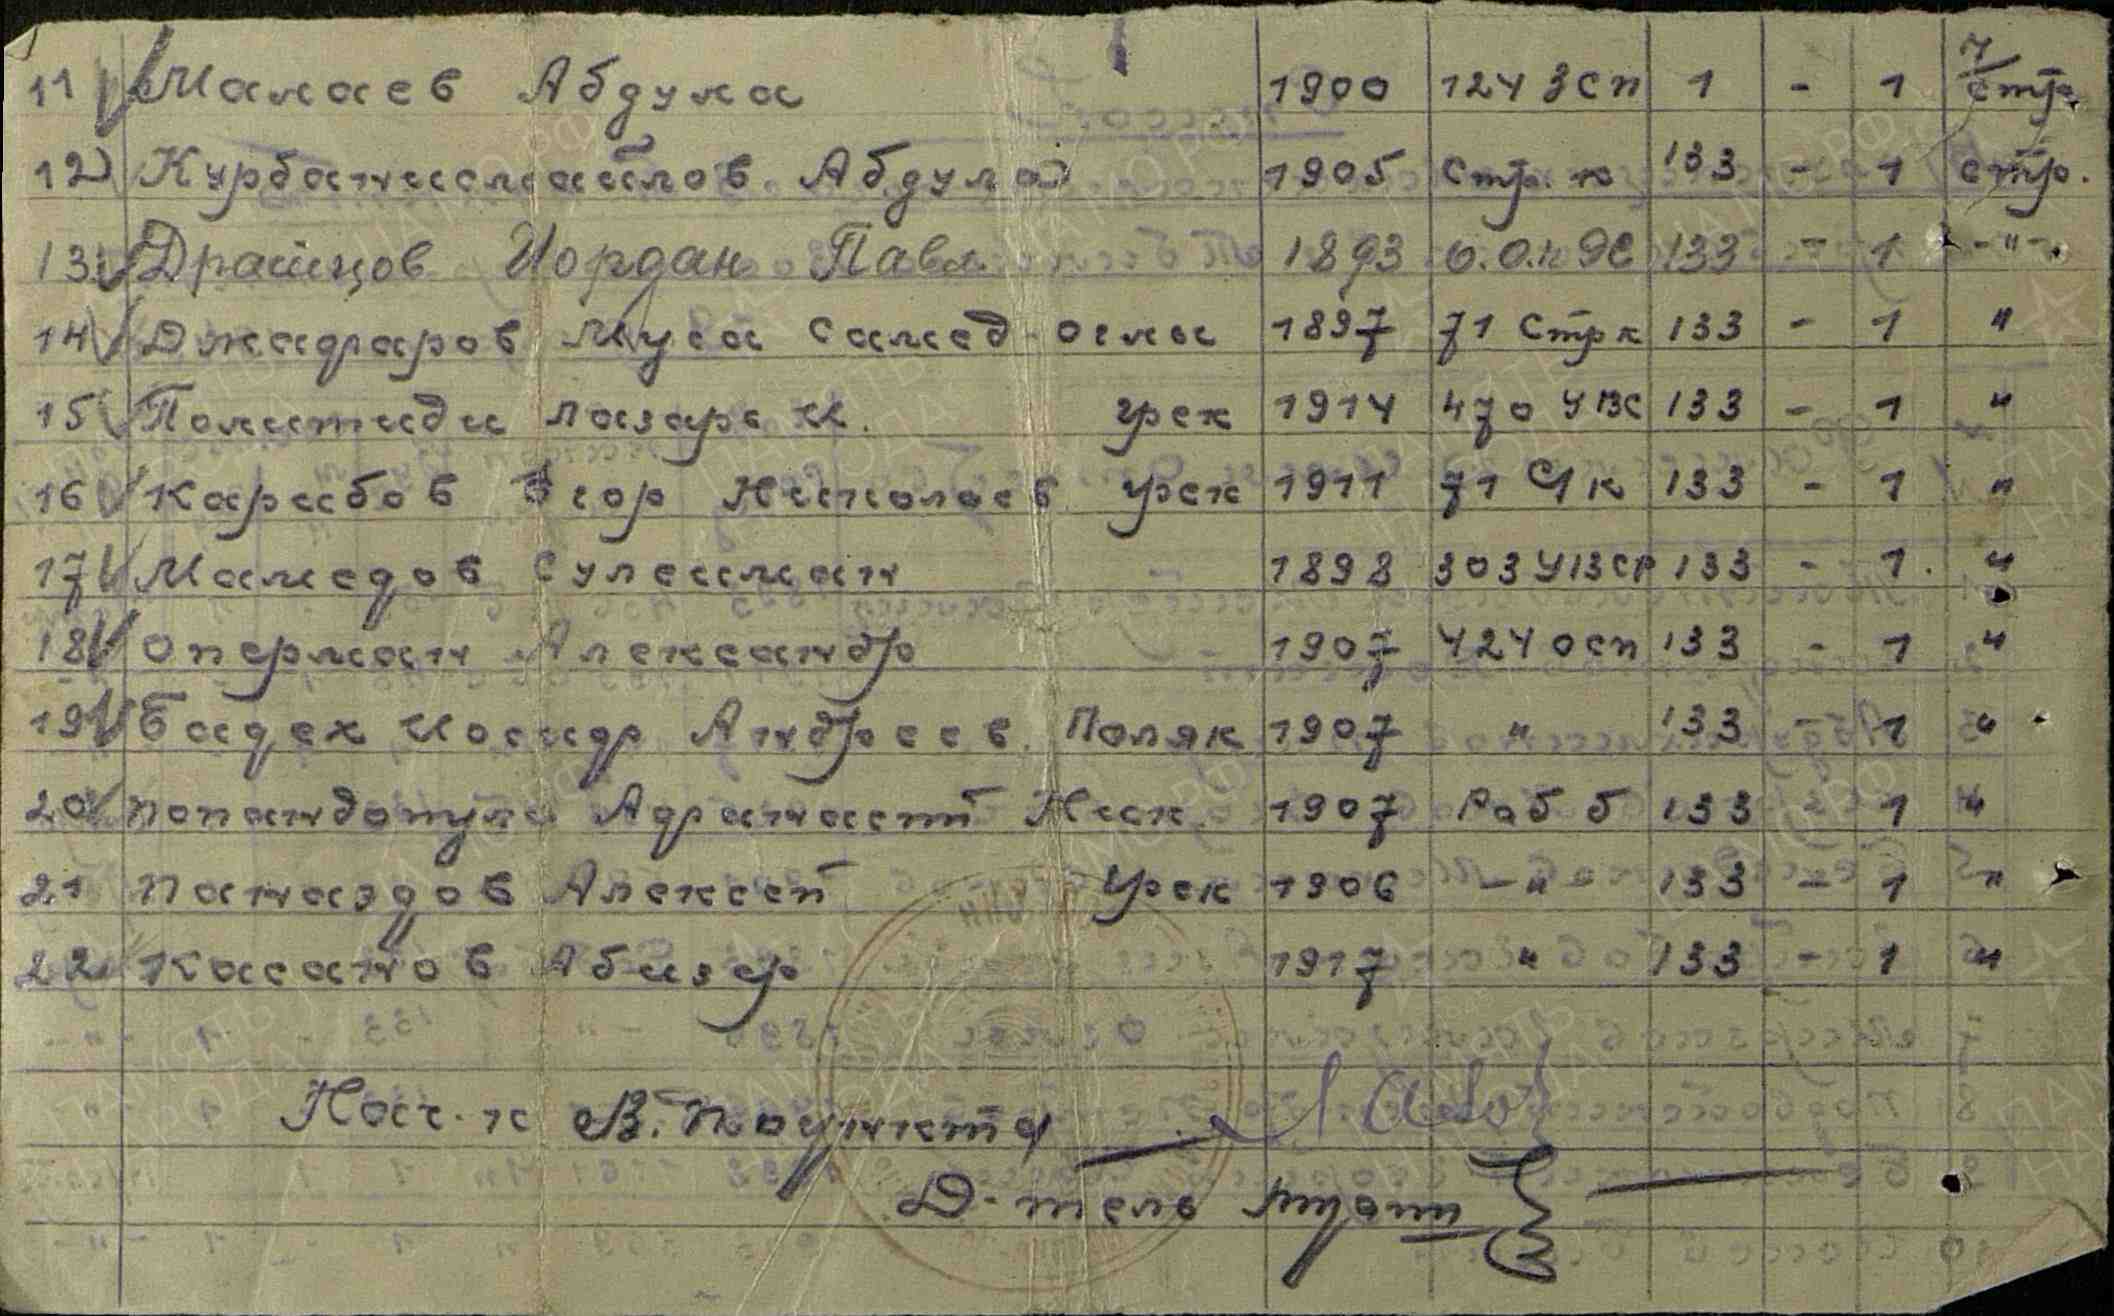 11 Малаев Абдула 1900 124 ЗСП 1 - 1 7/стр.
12 Курбанисмайлов Абдула 1905 Стр. к 133 - 1 стр.
13 Драшцов Иордан Павл 1893 133 - 1 -"-
14 Джафаров Муса Самед-оглы 1897 71 Стр к 133 - 1 "
15 Политиди Лазарь И. грек 1914 470 УВС 133 - 1 "
16 Карибов Егор Николаев грек 1911 71 133 - 1 "
17 Мамедов Сулейман 1898 303 УВСР 133 - 1 "
18 Оперман Александр 1907 424 осп 133 - 1 "
19 Бадех Иосиф Андреев. Поляк 1907 " 133 - 1 "
20 Попандопула Афанаст Ник 1907 Раб б 133 - 1 "
21 Паназдов Алексей Грек 1906 -"- 133 - 1 "
22 Касанов Абизер 1917 " 133 - 1 "
Нач. к В. Поункта
Д-тель